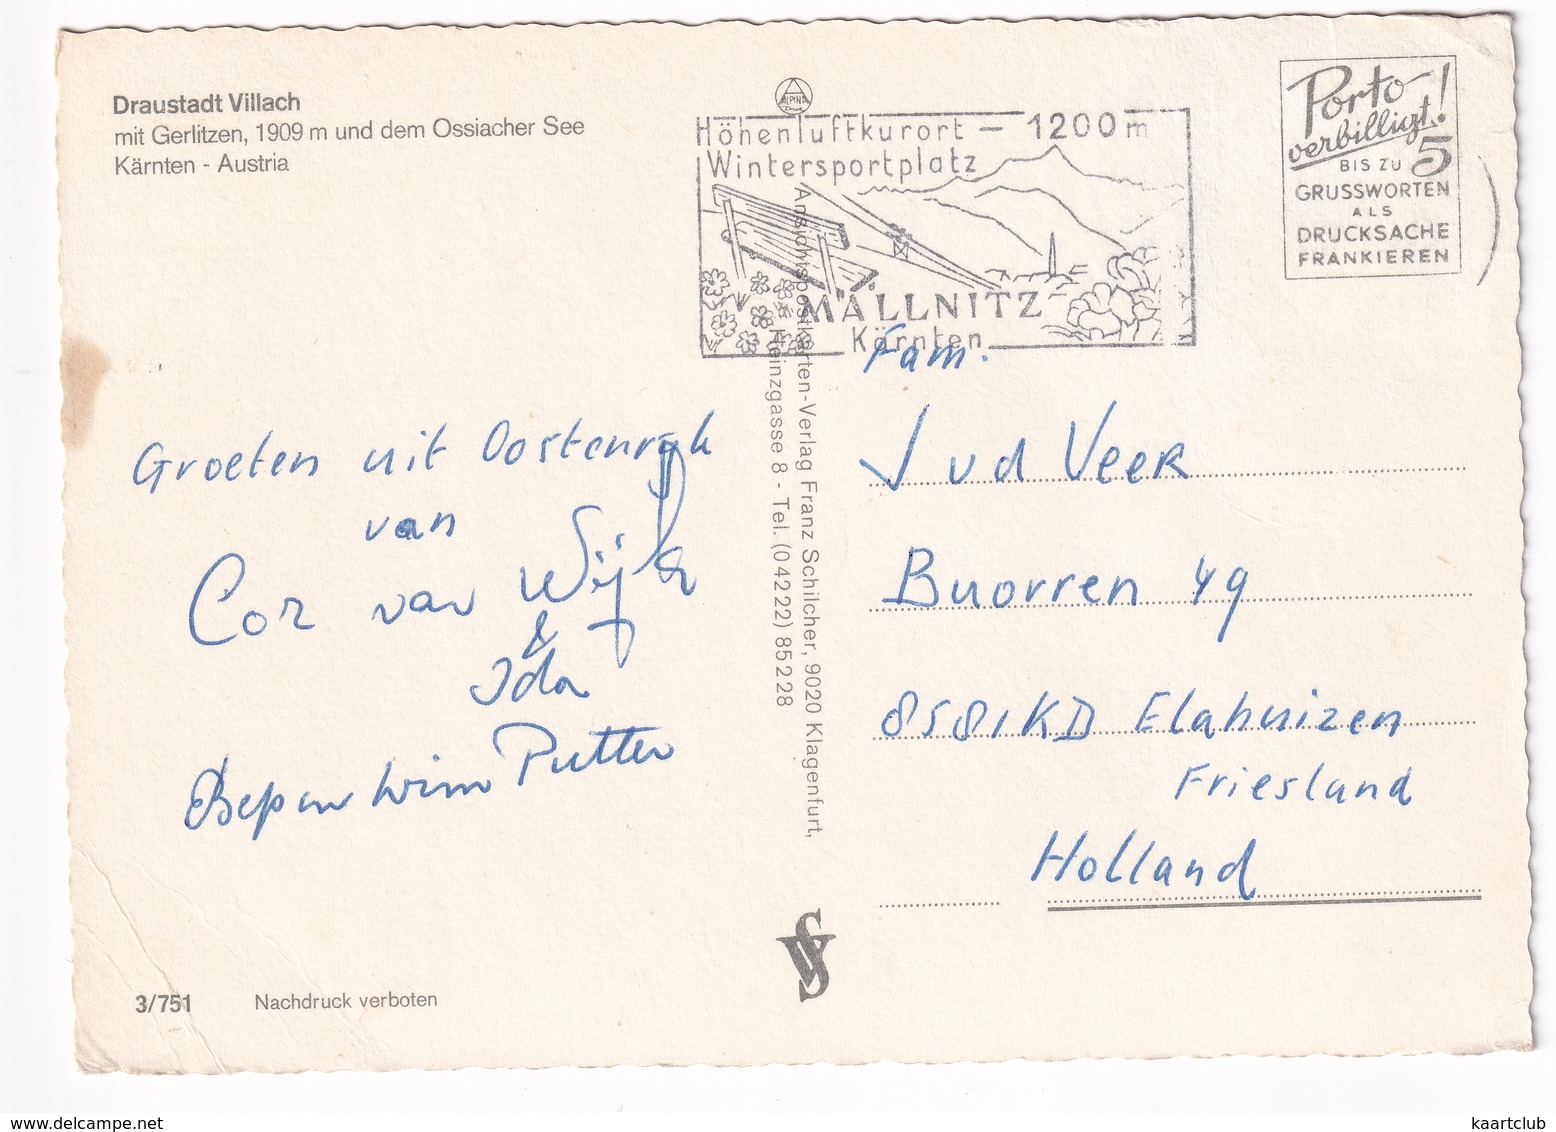 Draustadt Villach
mit Gerlitzen, 1909 m und dem Ossiacher See
Kärnten - Austria
ALPINA
Druck
Höhenluftkurort — 1200 m
Wintersportplatz
MALLNITZ
Kärnten
Porto
verbilligt!
BIS ZU 5
GRUSSWORTEN
ALS
DRUCKSACHE
FRANKIEREN
Groeten uit Oostenrijk
van
Cor van Wijk
&
Ida
Bep en Wim Putter
Ansichtspostkarten-Verlag Franz Schilcher, 9020 Klagenfurt,
Heinzgasse 8 - Tel. (0 42 22) 85 2 28
Fam.
J v d Veer
Buorren 49
8581KD Elahuizen
Friesland
Holland
3/751 Nachdruck verboten
www.delcampe.net
kaartclub